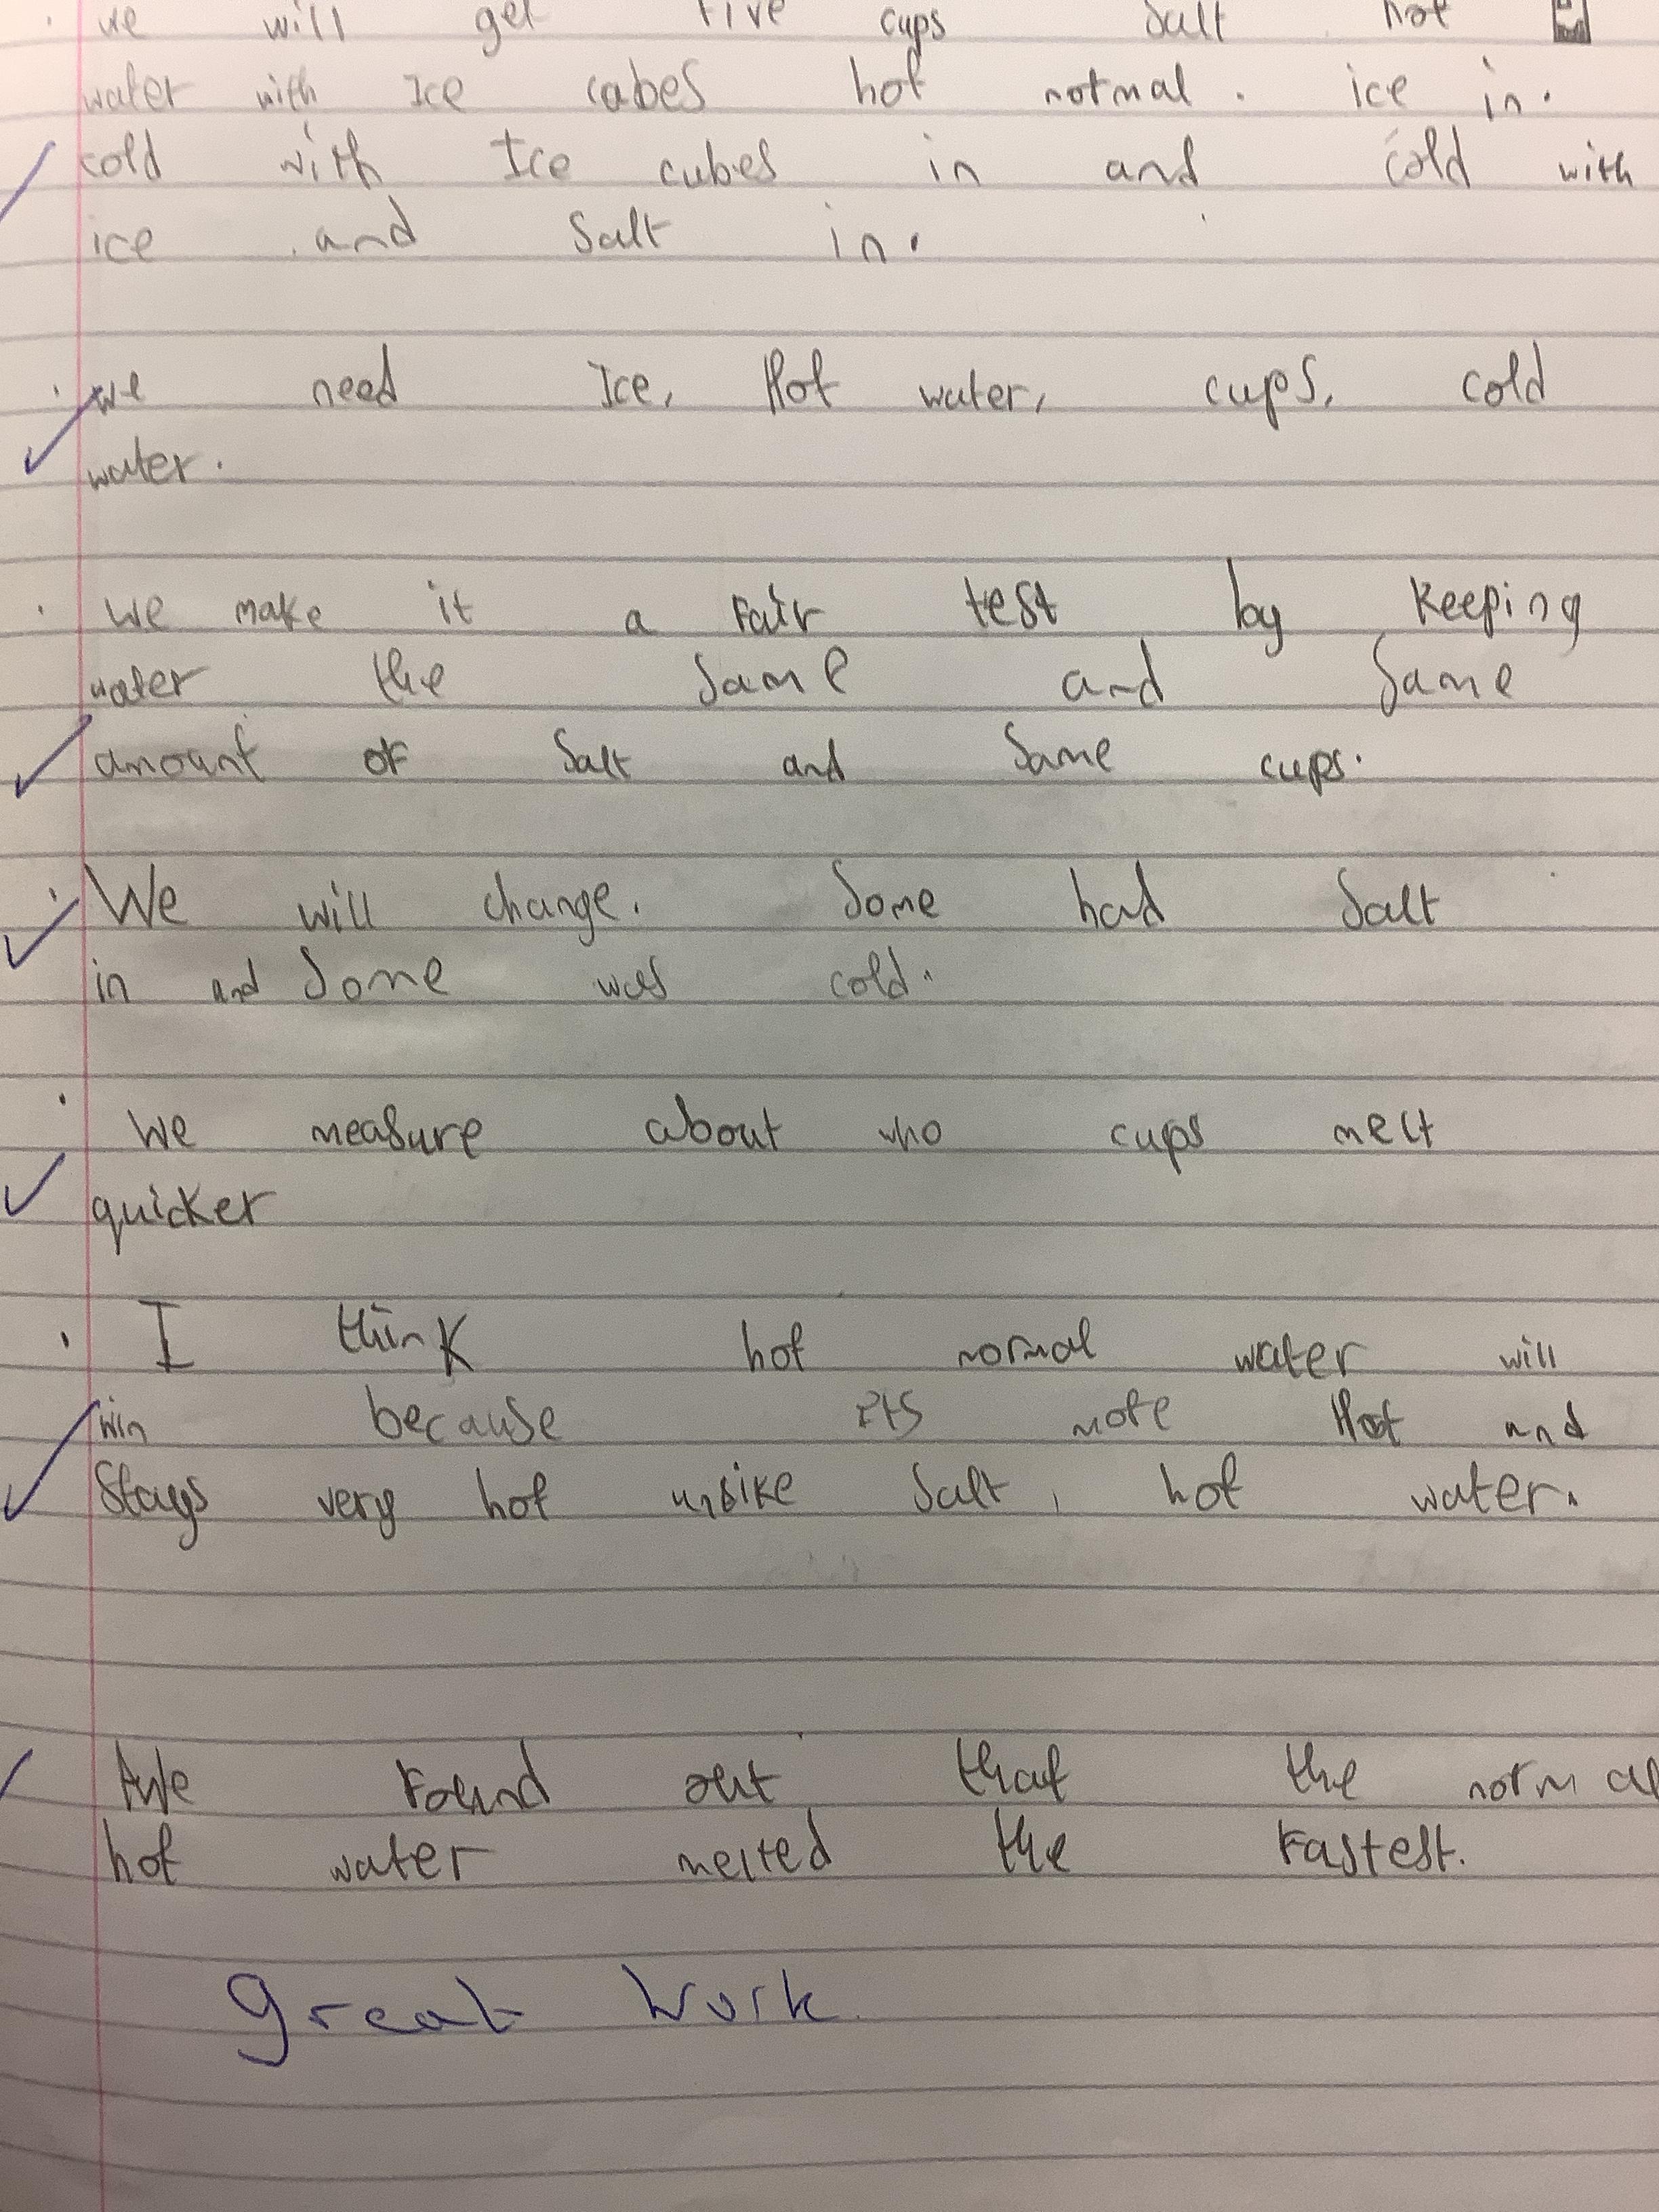 we will get five cups salt hot
water with Ice cabes hot normal. ice in.
cold with Ice cubes in and cold with
ice and salt in.
we need Ice, Hot water, cups, cold
water.
We make it a fair test by keeping
water the same and same
amount of salt and same cups.
We will change. Some had salt
in and some was cold.
We measure about who cups melt
quicker
I think hot normal water will
win because its more Hot and
Stays very hot unlike salt, hot water.
We found out that the normal
hot water melted the fastest.
great work.